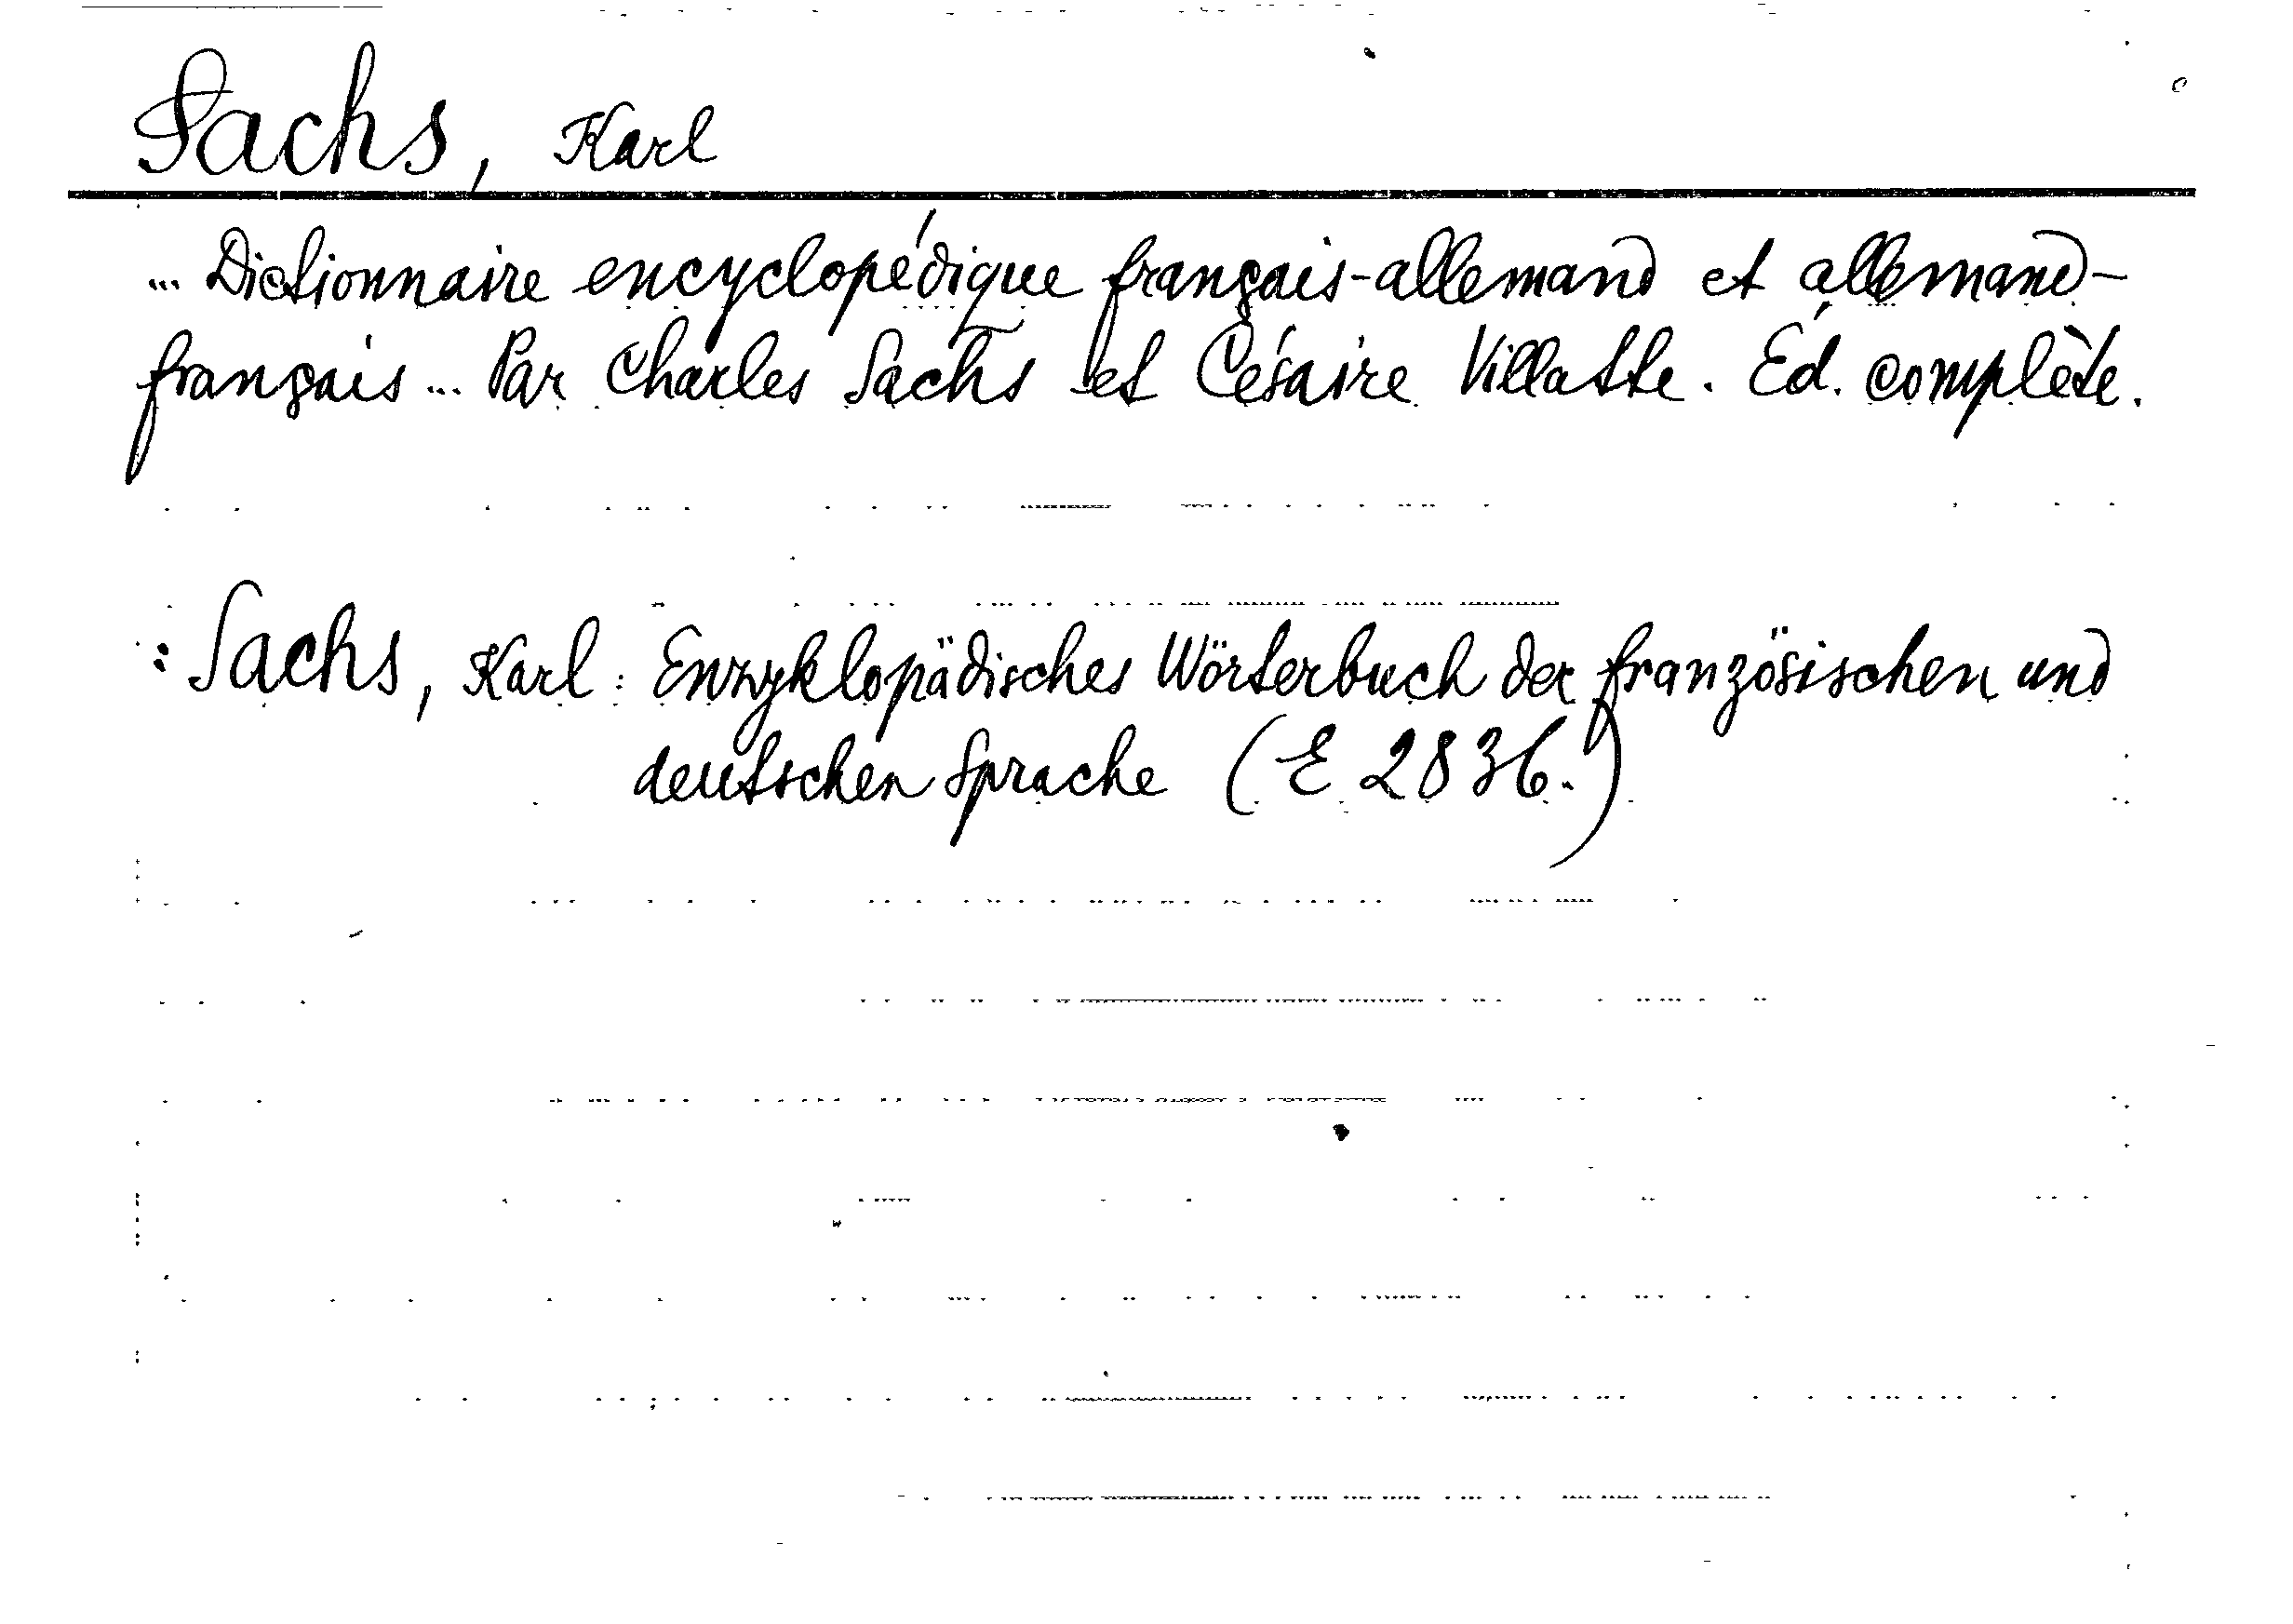 Sachs, Karl
... Dictionnaire encyclopédique français-allemand et allemand-
français ... Par Charles Sachs et Césaire Villatte. Éd. complète.
: Sachs, Karl: Enzyklopädisches Wörterbuch der französischen und
deutschen Sprache (E 2836.)